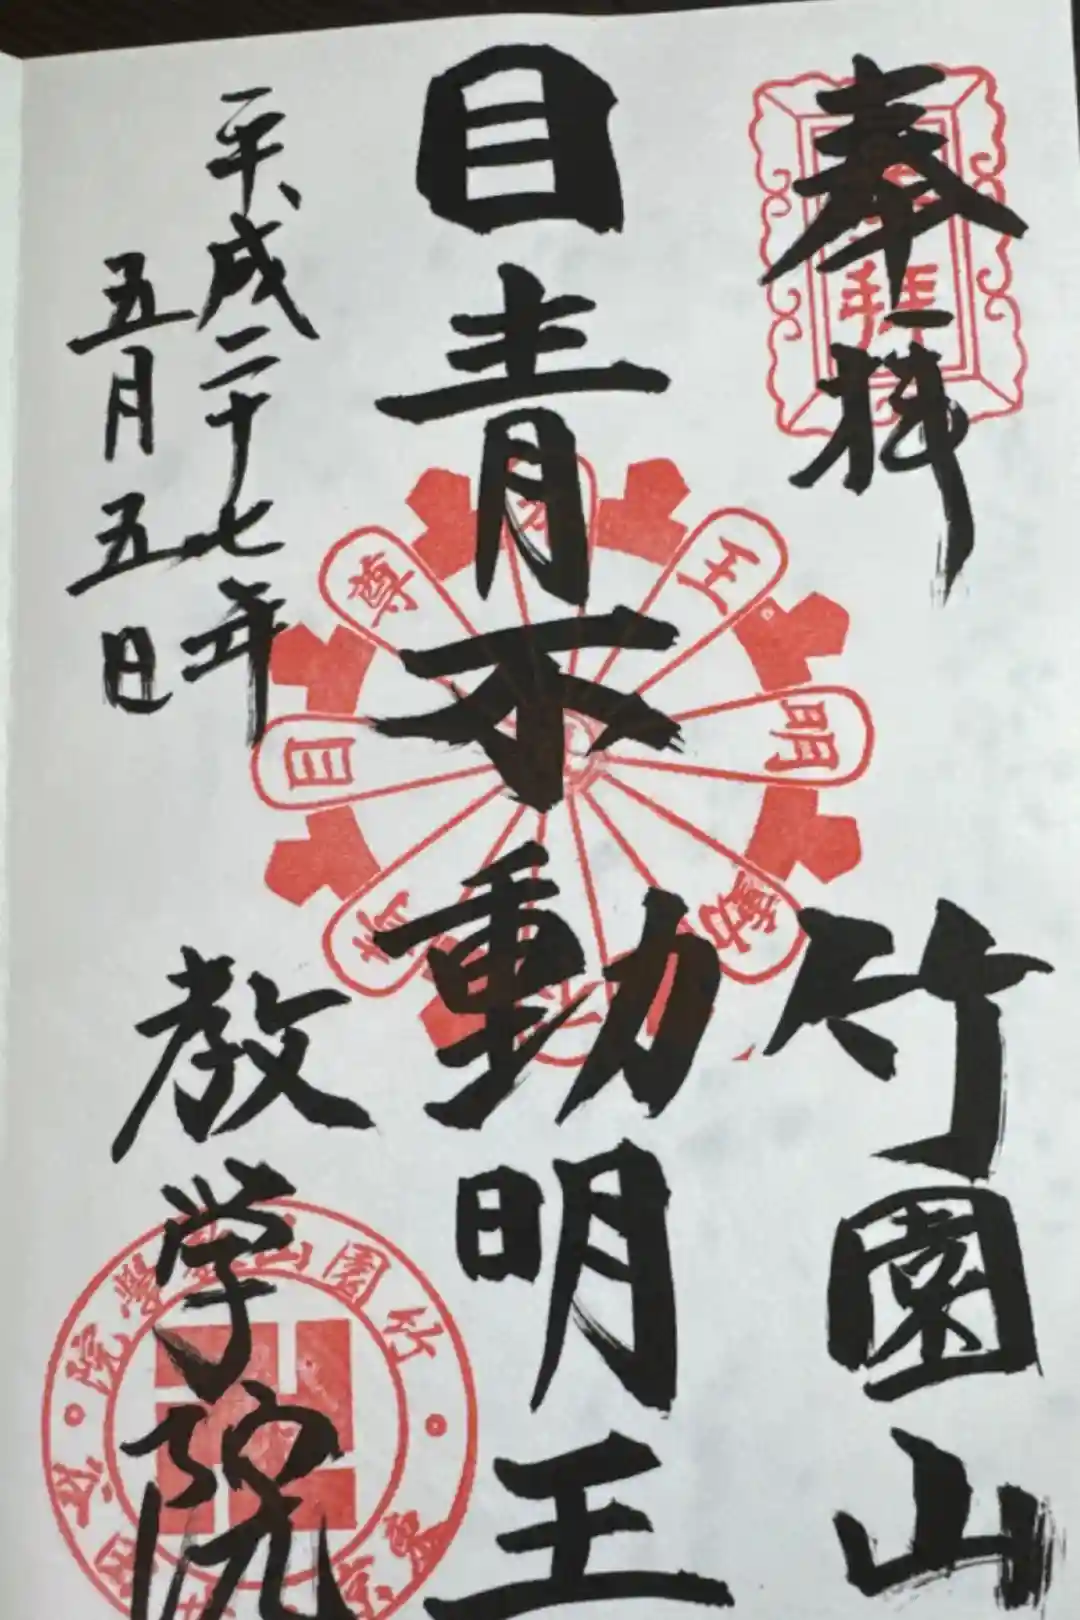 奉拝
竹園山
目青不動明王
平成二十七年
五月五日
教学院
王
明
動
尊
目
竹園山
學院